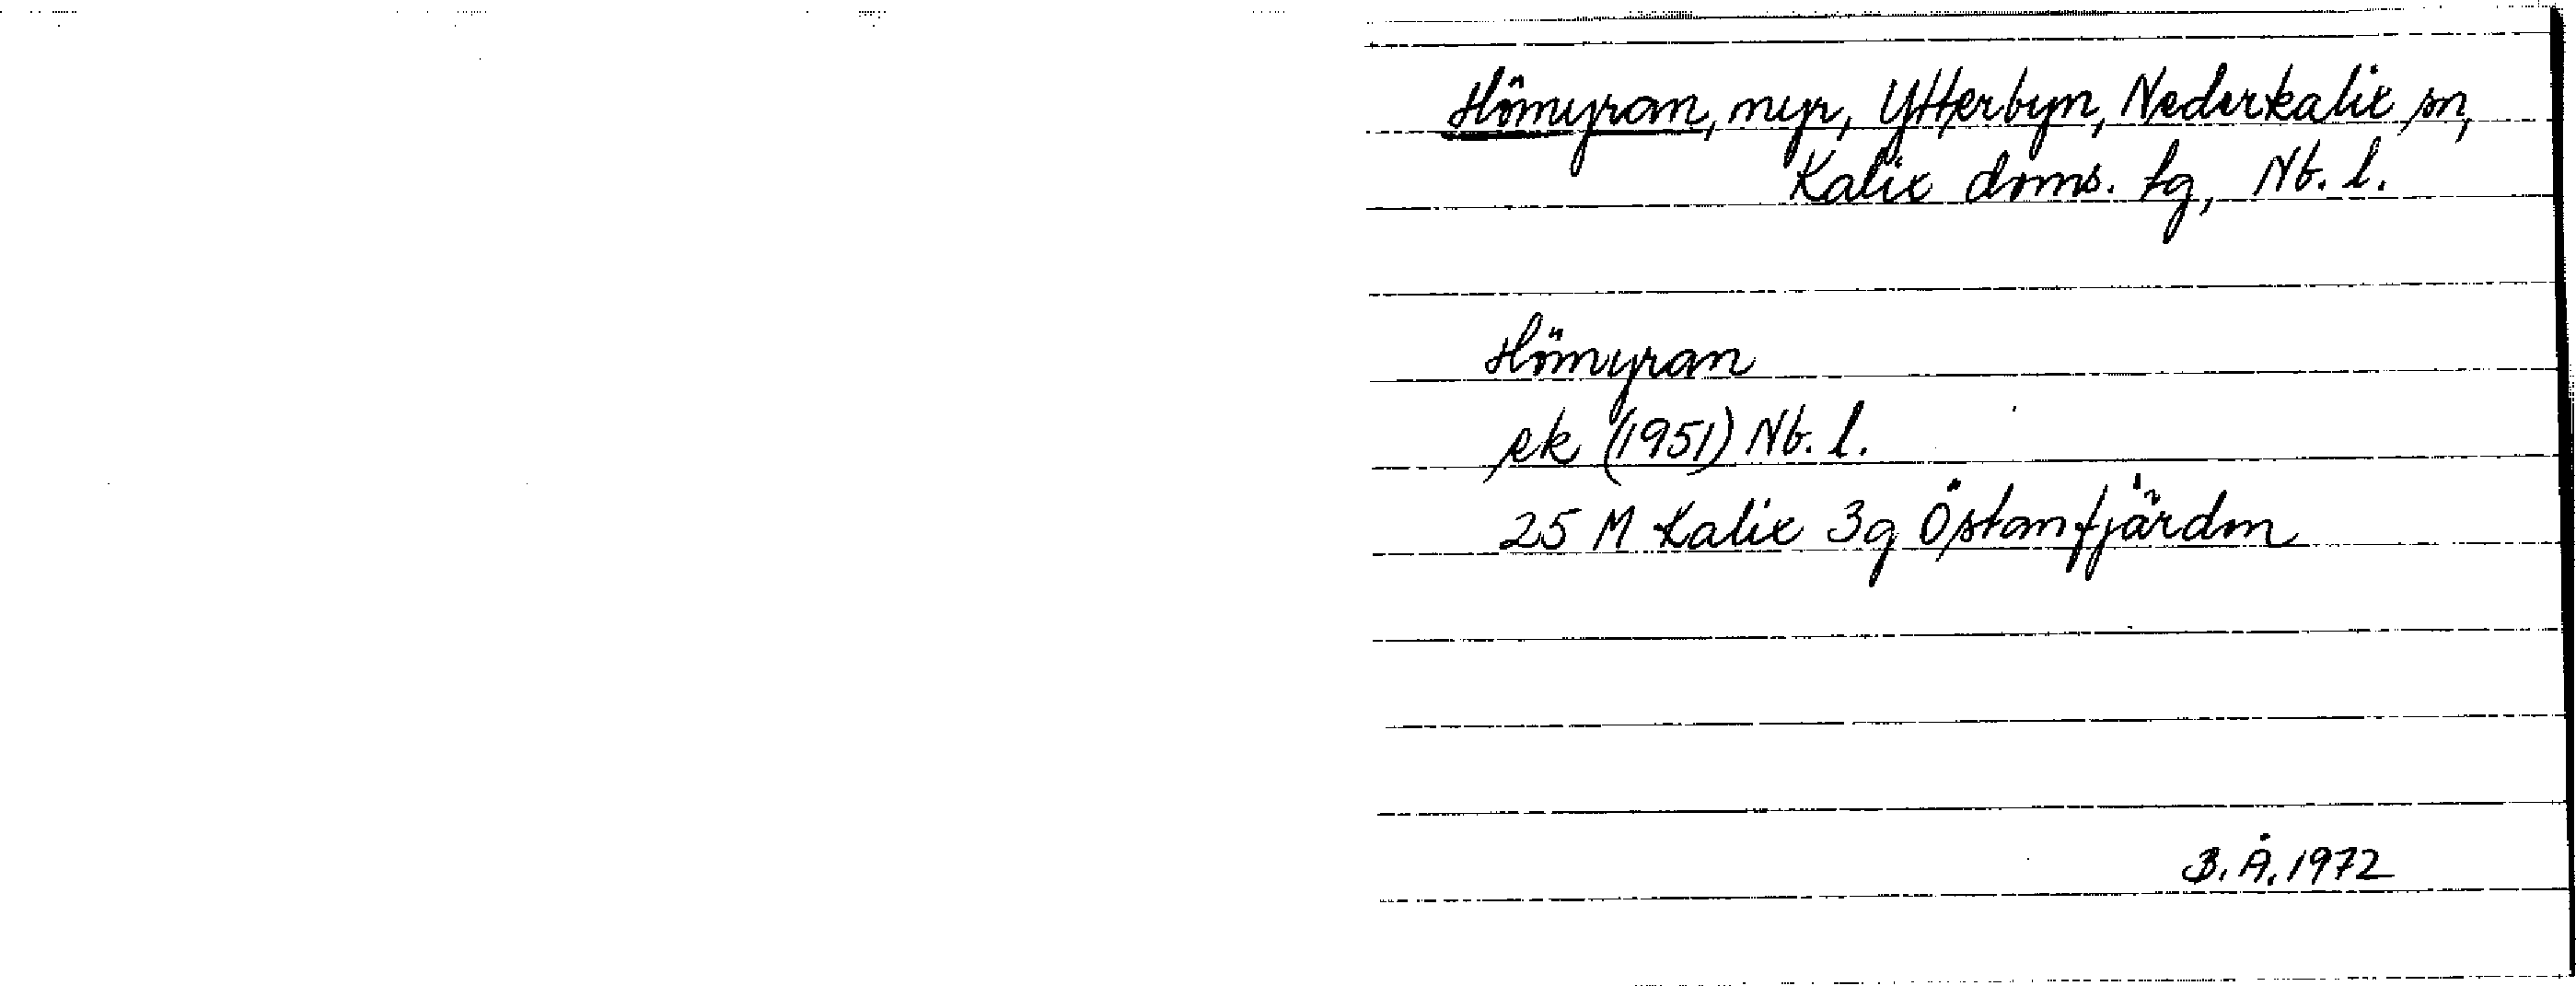 Hömyran, myr, Ytterbyn, Nederkalix sn,
Kalix doms. tg, Nb. l.
Hömyran
ek (1951) Nb. l.
25 M Kalix 3g Östanfjärden
B. Å. 1972